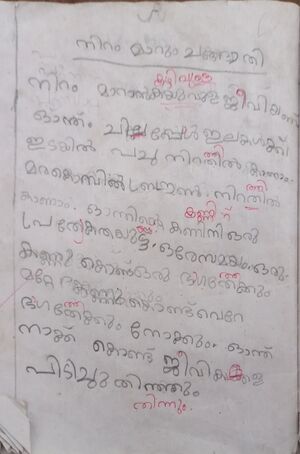 നിറം മാറും ചങ്ങാതി
കഴിവുള്ള
നിറം മാറാൻ ജീവിയാണ്
ഓന്ത്. ചിലപ്പോൾ ഇലകൾക്ക്
ഇടയിൽ പച്ച നിറത്തിൽ കാണാം.
മരക്കൊമ്പിൽ ബ്രൗൺ നിറത്തിൽ
കാണാം. ഓന്തിന്റെ കണ്ണിന് ഒരു
പ്രത്യേകതയുണ്ട്. ഒരേസമയം ഒരു
കണ്ണു കൊണ്ട് ഒരു ഭാഗത്തേക്കും
മറ്റേ കണ്ണു കൊണ്ട് വേറേ
ഭാഗത്തേക്കും നോക്കും. ഓന്ത്
നാക്ക് കൊണ്ട് ജീവികളെ
പിടിച്ചു തിന്നും
തിന്നും.